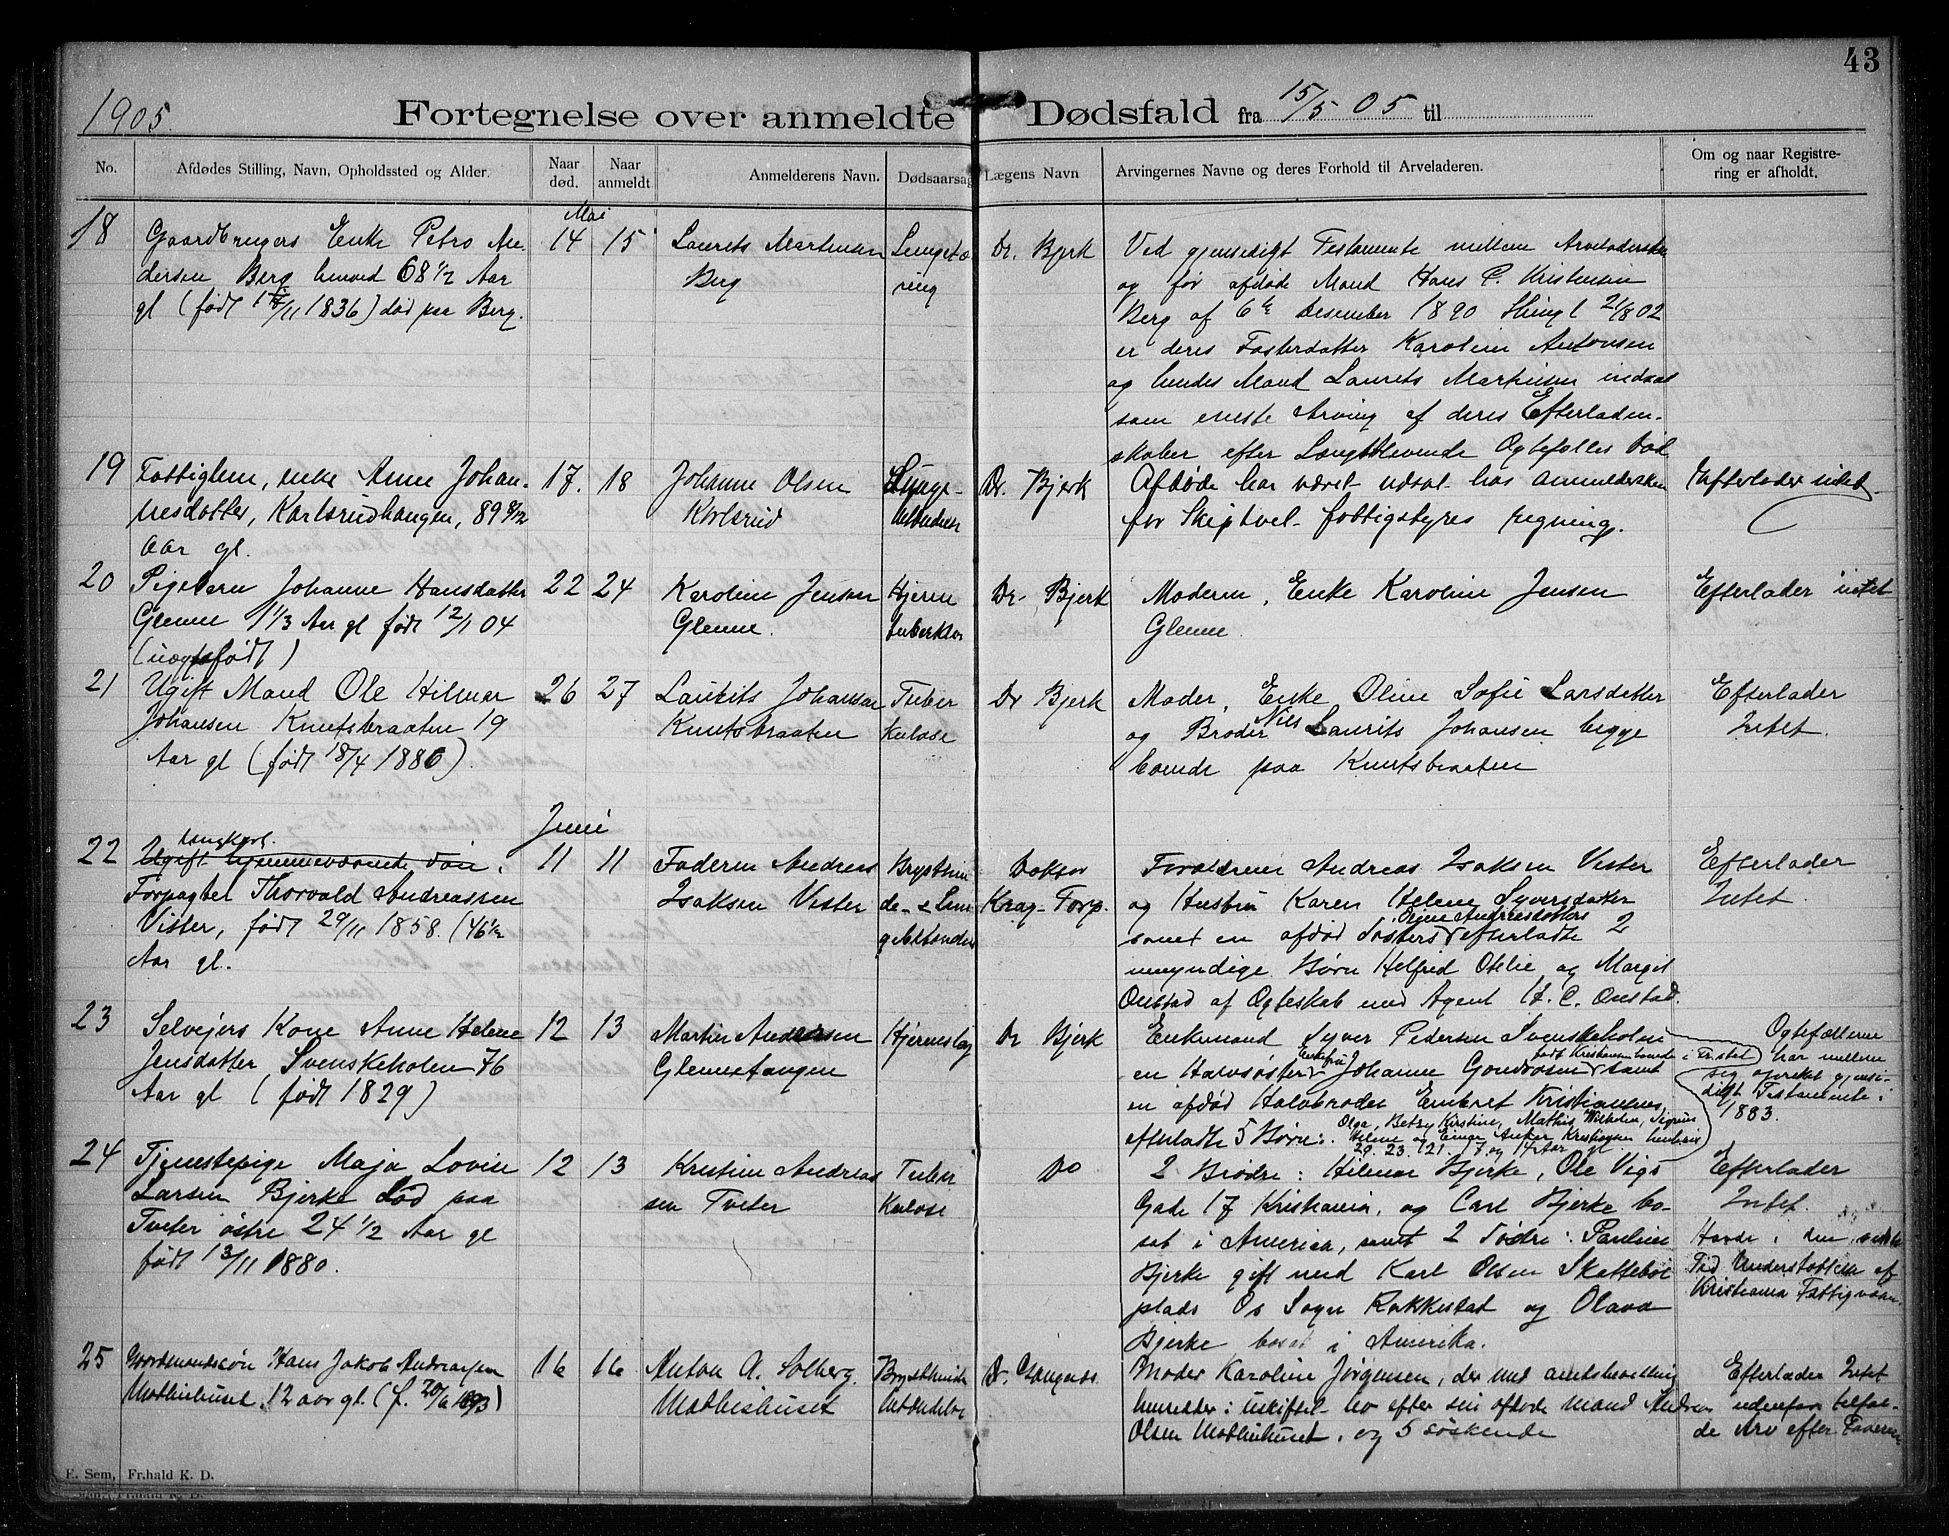 43
1905.
Fortegnelse over anmeldte Dødsfald fra 15/5 05 til
No.
Afdødes Stilling, Navn, Opholdssted og Alder.
Naar død.
Naar anmeldt
Anmelderens Navn.
Dødsaarsag
Lægens Navn
Arvingernes Navne og deres Forhold til Arveladeren.
Om og naar Registre-
ring er afholdt.
18
Gaardbrugers Enke Petro An-
dersen Berg henved 68 1/2 Aar
gl (født /11 1836) død paa Berg.
Mai
14
15
Laurets Martinsen
Berg
Lungetæ
ring
Dr. Bjerk
Ved gjensedigt Testamente mellem Arveladersken
og før afdøde Mand Hans P. Kristensen
Berg af 6te Desember 1890 thingl 2/8 02
er deres Fosterdatter Karoline Antonsen
og hendes Mand Laurets Martinsen indsat
som eneste Arving af deres Efterladen-
skaber efter Længstlevende Ægtefælles Død
19
Fattiglem, enke Anne Johan-
nesdatter, Karlsrudhaugen, 89 9/12
Aar gl.
17.
18
Johanne Olsen
Karlsrud
Lunge-
betændelse
Dr. Bjerk
Afdøde har været udsat hos anmeldersken
for Skiptvet fattigstyres regning.
Efterlader intet.
20
Pigebarn Johanne Hansdatter
Glenne 1 1/3 Aar gl født 12/1 04
(uægtefødt)
22
24
Karoline Jensen
Glenne.
Hjerne
tuberklos
Dr. Bjerk
Moderen, Enke Karoline Jensen
Glenne.
Efterlader intet
21
Ugift Mand Ole Hilmar
Johansen Knutsbraaten 19
Aar gl (født 18/4 1886).
26
27
Laurits Johansen
Knutsbraaten
Tuber
kulose
Dr Bjerk
Moder, Enke Oline Sofie Larsdatter
og Broder Nils Laurits Johansen begge
boende paa Knutsbraaten
Efterlader
Intet.
Juni
22
Ungkarl.
Ugift hjemmeværende Søn.
Forpagter Thorvald Andreassen
Vister, født 29/11 1858. (46 1/2
Aar gl.
11
11
Faderen Andreas
Isaksen Vister
Brysthin
de- & Lun
gebetændelse
Doktor
Krag-Torp.
Forældrene Andreas Isaksen Vister
og Hustru Karen Helene Syversdatter
samt en afdød Søsters Andreasdatters efterladte 2
umyndige Børn Helfrid Otelie og Margit
Onstad af Ægteskab med Agent H. C. Onstad.
Efterlader
Intet.
23
Selvejers Kone Anne Helene
Jensdatter Svenskeholen 76
Aar gl (født 1829)
12
13
Martin Andersen
Glennetangen
Hjerneslag
Dr Bjerk
Enkemand Syver Pedersen Svenskeholen
en Halvsøster Enkefru Johanne Gondrosen født Kristiansen boende i Tr.stad samt
en afdød Halvbroder Embret Kristiansens
efterladte 5 Børn: Olga, Betzy Kirstine, Mathis Wilhelm, Sigrun
Helene og Einar Anker Kristiansen henholdsvis
29. 23. 21. 17 og 14 Aar gl.
Ægtefællerne
har mellem
sig oprettet gjensi-
digt Testamente i
1883.
24
Tjenestepige Maja Lovise
Larsen Bjerke død paa
Tveter østre 24 1/2 Aar gl
født 13/11 1880.
12
13
Kristine Andreas
sen Tveter
Tuber
kulose
Do
2 Brødre: Hilmar Bjerke, Ole Vigs
Gade 17 Kristiania, og Carl Bjerke bo-
sat i America, samt 2 Søstre: Pauline
Bjerke gift med Karl Olsen Skattebøl
plads Os Sogn Rakkestad og Olava
Bjerke bosat i Amerika.
Efterlader
Intet.
Havde i den sidste
Tid Understøttelse af
Kristiania Fattigvæsen.
25
Gaardmandssøn Hans Jakob Andreassen
Mathishuset, 12 aar gl. (f. 20/6 1893)
16
16
Anton A. Solberg,
Mathishuset
Brysthinde
betændelse
Moder Karoline Jørgensen, der med amtsbevilling
hensidder i uskiftet bo efter sin afdøde Mand Andreas
Olsen Mathishuset, og 5 søskende
Efterlader Intet
udenfor tilfal-
de Arv efter Faderen
E. Sem, Fr.hald K. D.